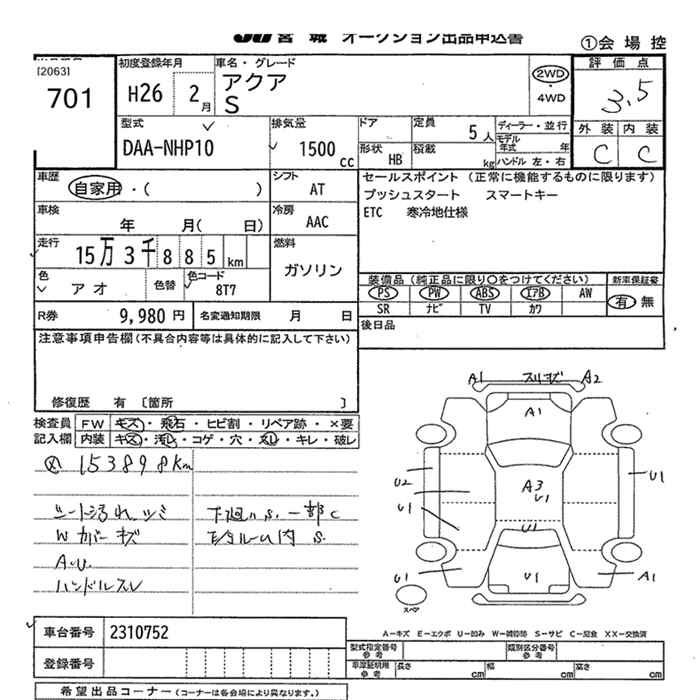 JU 宮城 オークション出品申込書
①会場控
[2063]
701
初度登録年月
H26 2月
車名・グレード
アクア
S
2WD
・
4WD
評価点
3.5
外装 内装
C C
型式
DAA-NHP10
排気量
1500 cc
ドア
形状 HB
定員 5人
積載 kg
ディーラー・並行
モデル年式 年
ハンドル 左・右
車歴
自家用・( )
シフト
AT
セールスポイント (正常に機能するものに限ります)
プッシュスタート スマートキー
ETC 寒冷地仕様
車検
年 月( 日)
冷房
AAC
走行
15万3千885km
燃料
ガソリン
色
アオ
色替
色コード
8T7
装備品(純正品に限り○をつけてください)
新車保証書
PS PW ABS エアB AW
SR ナビ TV カワ
有 無
R券 9,980円
名変通知期限 月 日
後日品
注意事項申告欄(不具合内容等は具体的に記入して下さい)
修復歴 有 [箇所 ]
検査員記入欄
FW キズ・飛石・ヒビ割・リペア跡・×要
内装 キズ・汚レ・コゲ・穴・スレ・キレ・破レ
153898km
シート汚れ、シミ
Wカバーキズ
A.U.
ハンドルスレ
下廻りS.一部C
A1 A2
A1
U2
U1
A3
U1
U1
U1
U1
U1
A1
スペア
A-キズ E-エクボ U-凹み W-補修跡 S-サビ C-腐食 XX-交換済
車台番号 2310752
登録番号
型式指定番号 参考
類別区分番号 参考
車庫証明用 参考
長さ cm
幅 cm
高さ cm
希望出品コーナー(コーナーは各会場により異なります。)